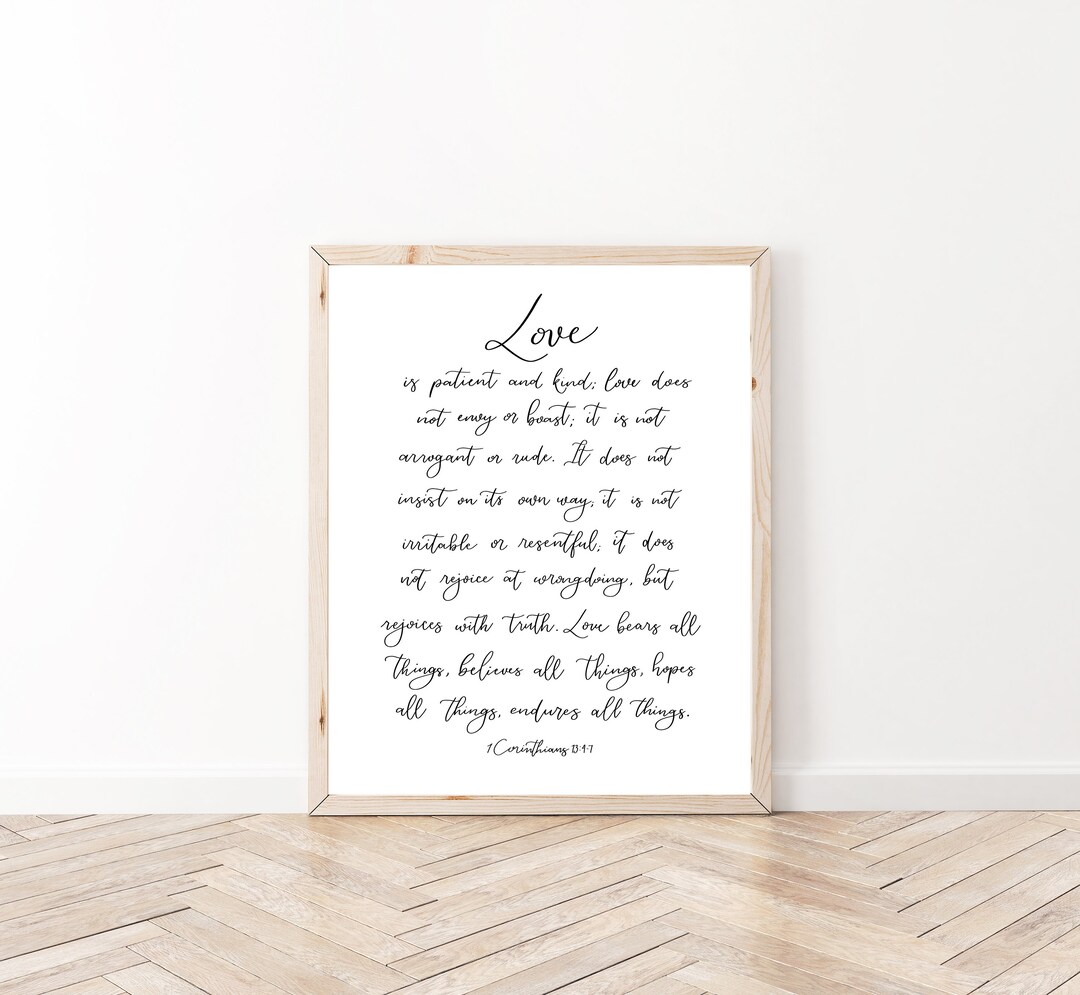 Love
is patient and kind; love does
not envy or boast; it is not
arrogant or rude. It does not
insist on its own way; it is not
irritable or resentful; it does
not rejoice at wrongdoing, but
rejoices with truth. Love bears all
things, believes all things, hopes
all things, endures all things.
1 Corinthians 13:4-7